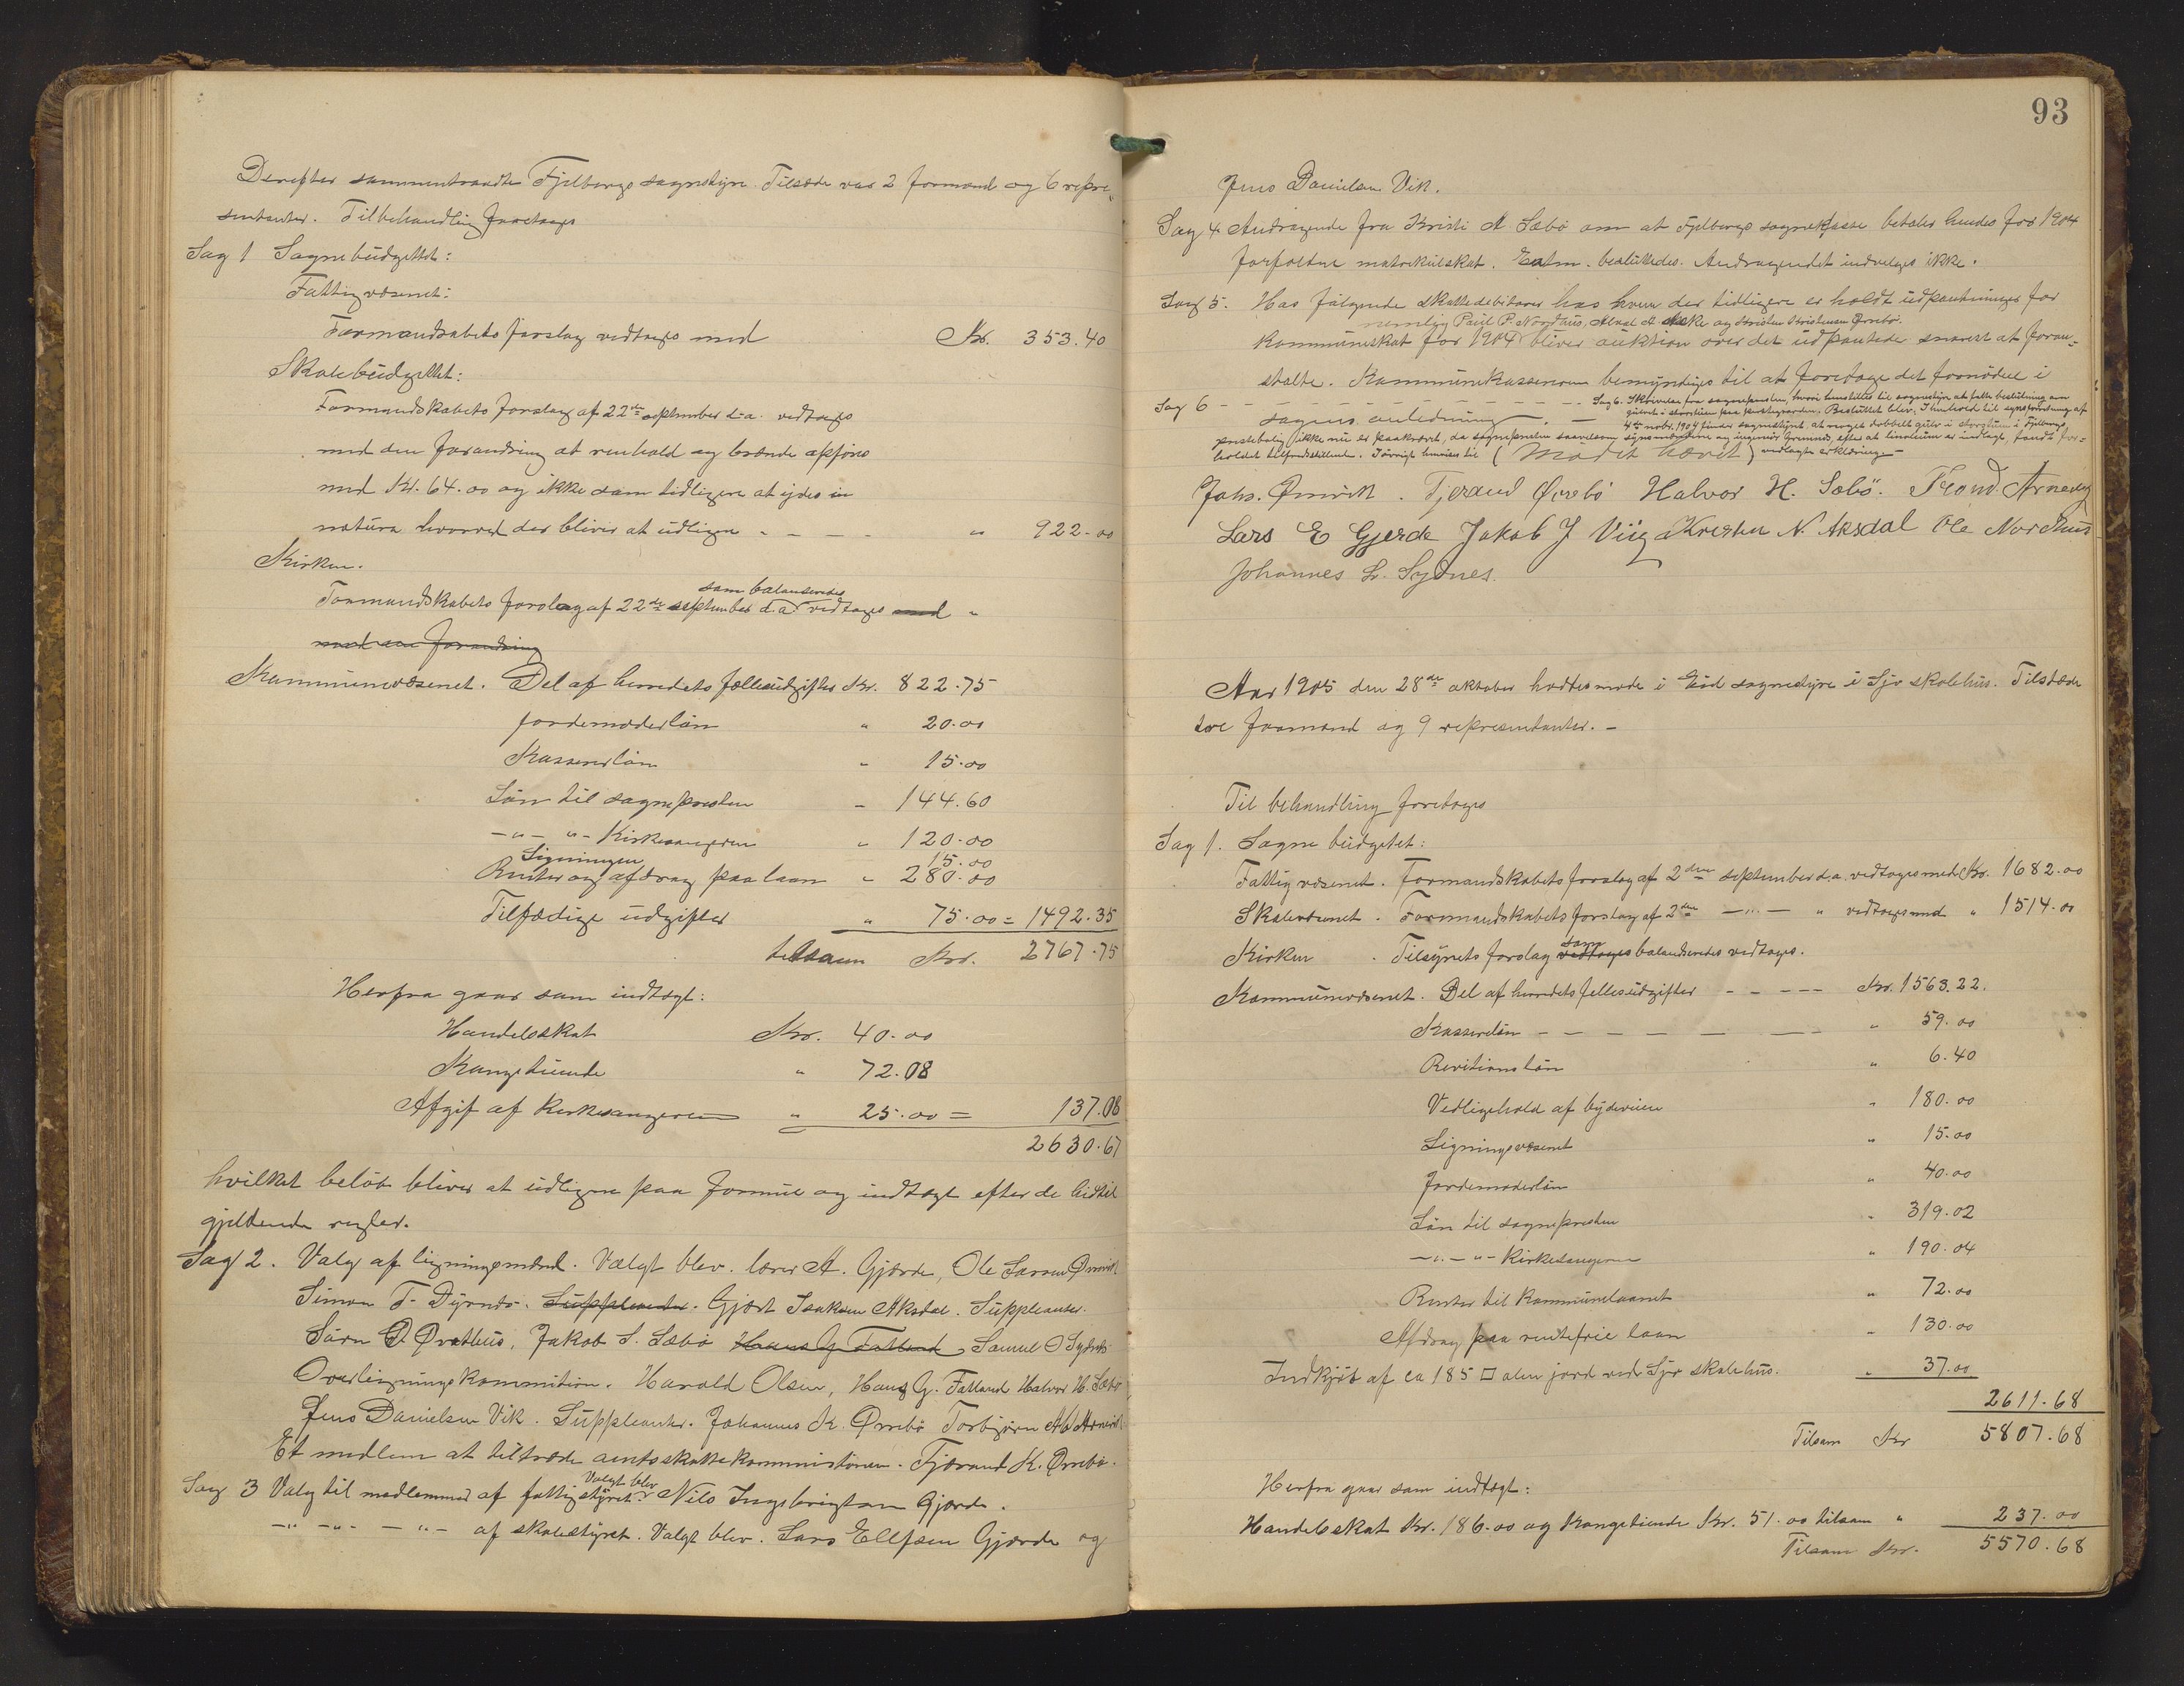 Derefter sammentraadte Fjelbergs sognestyre. Tilstede var 2 formænd og 6 repre-
sentanter. Til behandling foretoges
Sag 1 Sognebudgettet:
Fattigvæsenet:
Formandskabets forslag vedtoges med Kr. 353.40
Skolebudgettet:
Formandskabets forslag af 22de september d.a. vedtoges
med den forandring at renhold og brænde opføres
med Kr. 64.00 og ikke som tidligere at ydes in
natura hvorved der bliver at udligne - - - - " 922.00
Kirken.
som balanserede
Formandskabets forslag af 22de september d.a. vedtoges med "
med en forandring
Kommunevæsenet. Del af herredets fællesudgifter Kr. 822.75
Jordemoderløn " 20.00
Kassererløn " 15.00
Løn til sognepresten " 144.60
-"- "- Kirkesangeren " 120.00
Ligningen 15.00
Renter og afdrag paa laan " 280.00
Tilfældige udgifter " 75.00 = 1492.35
tilsam Kr. 2767.75
Herfra gaar som indtægt:
Handelsskat Kr. 40.00
Kongetiende " 72.08
Afgif af Kirkesangeren " 25.00 = 137.08
2630.67
hvilket beløb bliver at udligne paa formue og indtægt efter de hidtil
gjeldende regler.
Sag 2. Valg af ligningsmænd. Valgt blev. lærer A. Gjærde, Ole Larsen Ølmvik
Simon T. Dyrnes. Suppleanter. Gjert Isaksen Aksdal. Suppleanter.
Sørn P. Øvrthus, Jakob S. Sæbø Hans G. Fatland, Samuel O Sydnes
Overligningskommition. Harald Olsen, Hans G. Fatland Halvor H. Sæbø
Jens Danielsen Vik. Suppleanter. Johannes K. Ørrebø Torbjørn Arnevik
Et medlem at tiltræde amtsskattekommistionen. Tjærand K. Ørrebø.
Valgt blev
Sag 3 Valg til medlemmer af fattigstyret. Nils Ingebrigtsen Gjærde.
-"- -"- -"- af skolestyret. Valgt blev. Lars Ellefsen Gjærde og
93
Jens Danielsen Vik.
Sag 4 Andragende fra Kristi A Sæbø om at Fjelbergs sognekasse betaler hendes for 1904
forfaldne matrikulskat. Enstm. besluttedes. Andragendet indvilges ikke.
Sag 5. Hos følgende skattedebitorer hos hvem der tidligere er holdt udpantninger for
nemlig Paul P. Nordhus, og Kristen Kristensen Ørrebø.
Kommuneskat for 1904 bliver auktion over det udpantede snarest at foran-
stalte. Kommunekassereren bemyndiges til at foretage det fornødne i
sagens anledning. -
Sag 6 - - - - Sag 6. Skrivelse fra sognepresten, hvori henstilles til sognestyre at fatte beslutning om
gulvet i storstuen paa prestegaarden. Besluttet blev: I henhold til synsforretning af
4de nobr. 1904 finder sognestyret, at noget dobbelt gulv i storstuen i Fjelbergs
prestebolig ikke nu er paakrævet, da sognepresten saavelsom synsmændene og ingeniør Grennes, efter at linoleum er indlagt, fandt for-
holdet tilfredsstillende. I øvrigt henvises til (Mødet hævet) vedlagte erklæring. -
Johs. Ølmvik. Tjerand Ørrebø Halvor H. Sæbø. Trond Arnevig
Lars E Gjerde Jakob J Viig Kresten N. Aksdal Ole Nordhus
Johannes L. Sydnes.
Aar 1905 den 28de oktober holdtes møde i Eid sognestyre i Sjo skolehus. Tilstede
tre formænd og 9 representanter. -
Til behandling foretoges
Sag 1. Sogne budgetet:
Fattigvæsenet. Formandskabets forslag af 2den september d.a. vedtoges med Kr. 1682.00
Skolevæsenet. Formandskabets forslag af 2den -"- " vedtoges med " 1514.00
som
Kirken. Tilsynets forslag vedtoges balanderedes vedtoges.
Kommunevæsenet. Del af herredets fellesudgifter - - - - Kr. 1563.22.
Kassererløn - - - - - - " 59.00
Revitionsløn " 6.40
Vedligehold af bygdeveiene " 180.00
Ligningsvæsenet " 15.00
Jordemoderløn " 40.00
Løn til sognepresten " 319.02
-"- "- Kirkesangeren " 190.04
Renter til Kommunelaanet " 72.00
Afdrag paa rentefrie laan " 130.00
Indkjøb af ca 185 □ alen jord ved Sjo skolehus. " 37.00
2611.68
Tilsam Kr 5807.68
Herfra gaar som indtægt:
Handelsskat Kr. 186.00 og Kongetiende Kr. 51.00 tilsam " 237.00
Tilsam Kr. 5570.68